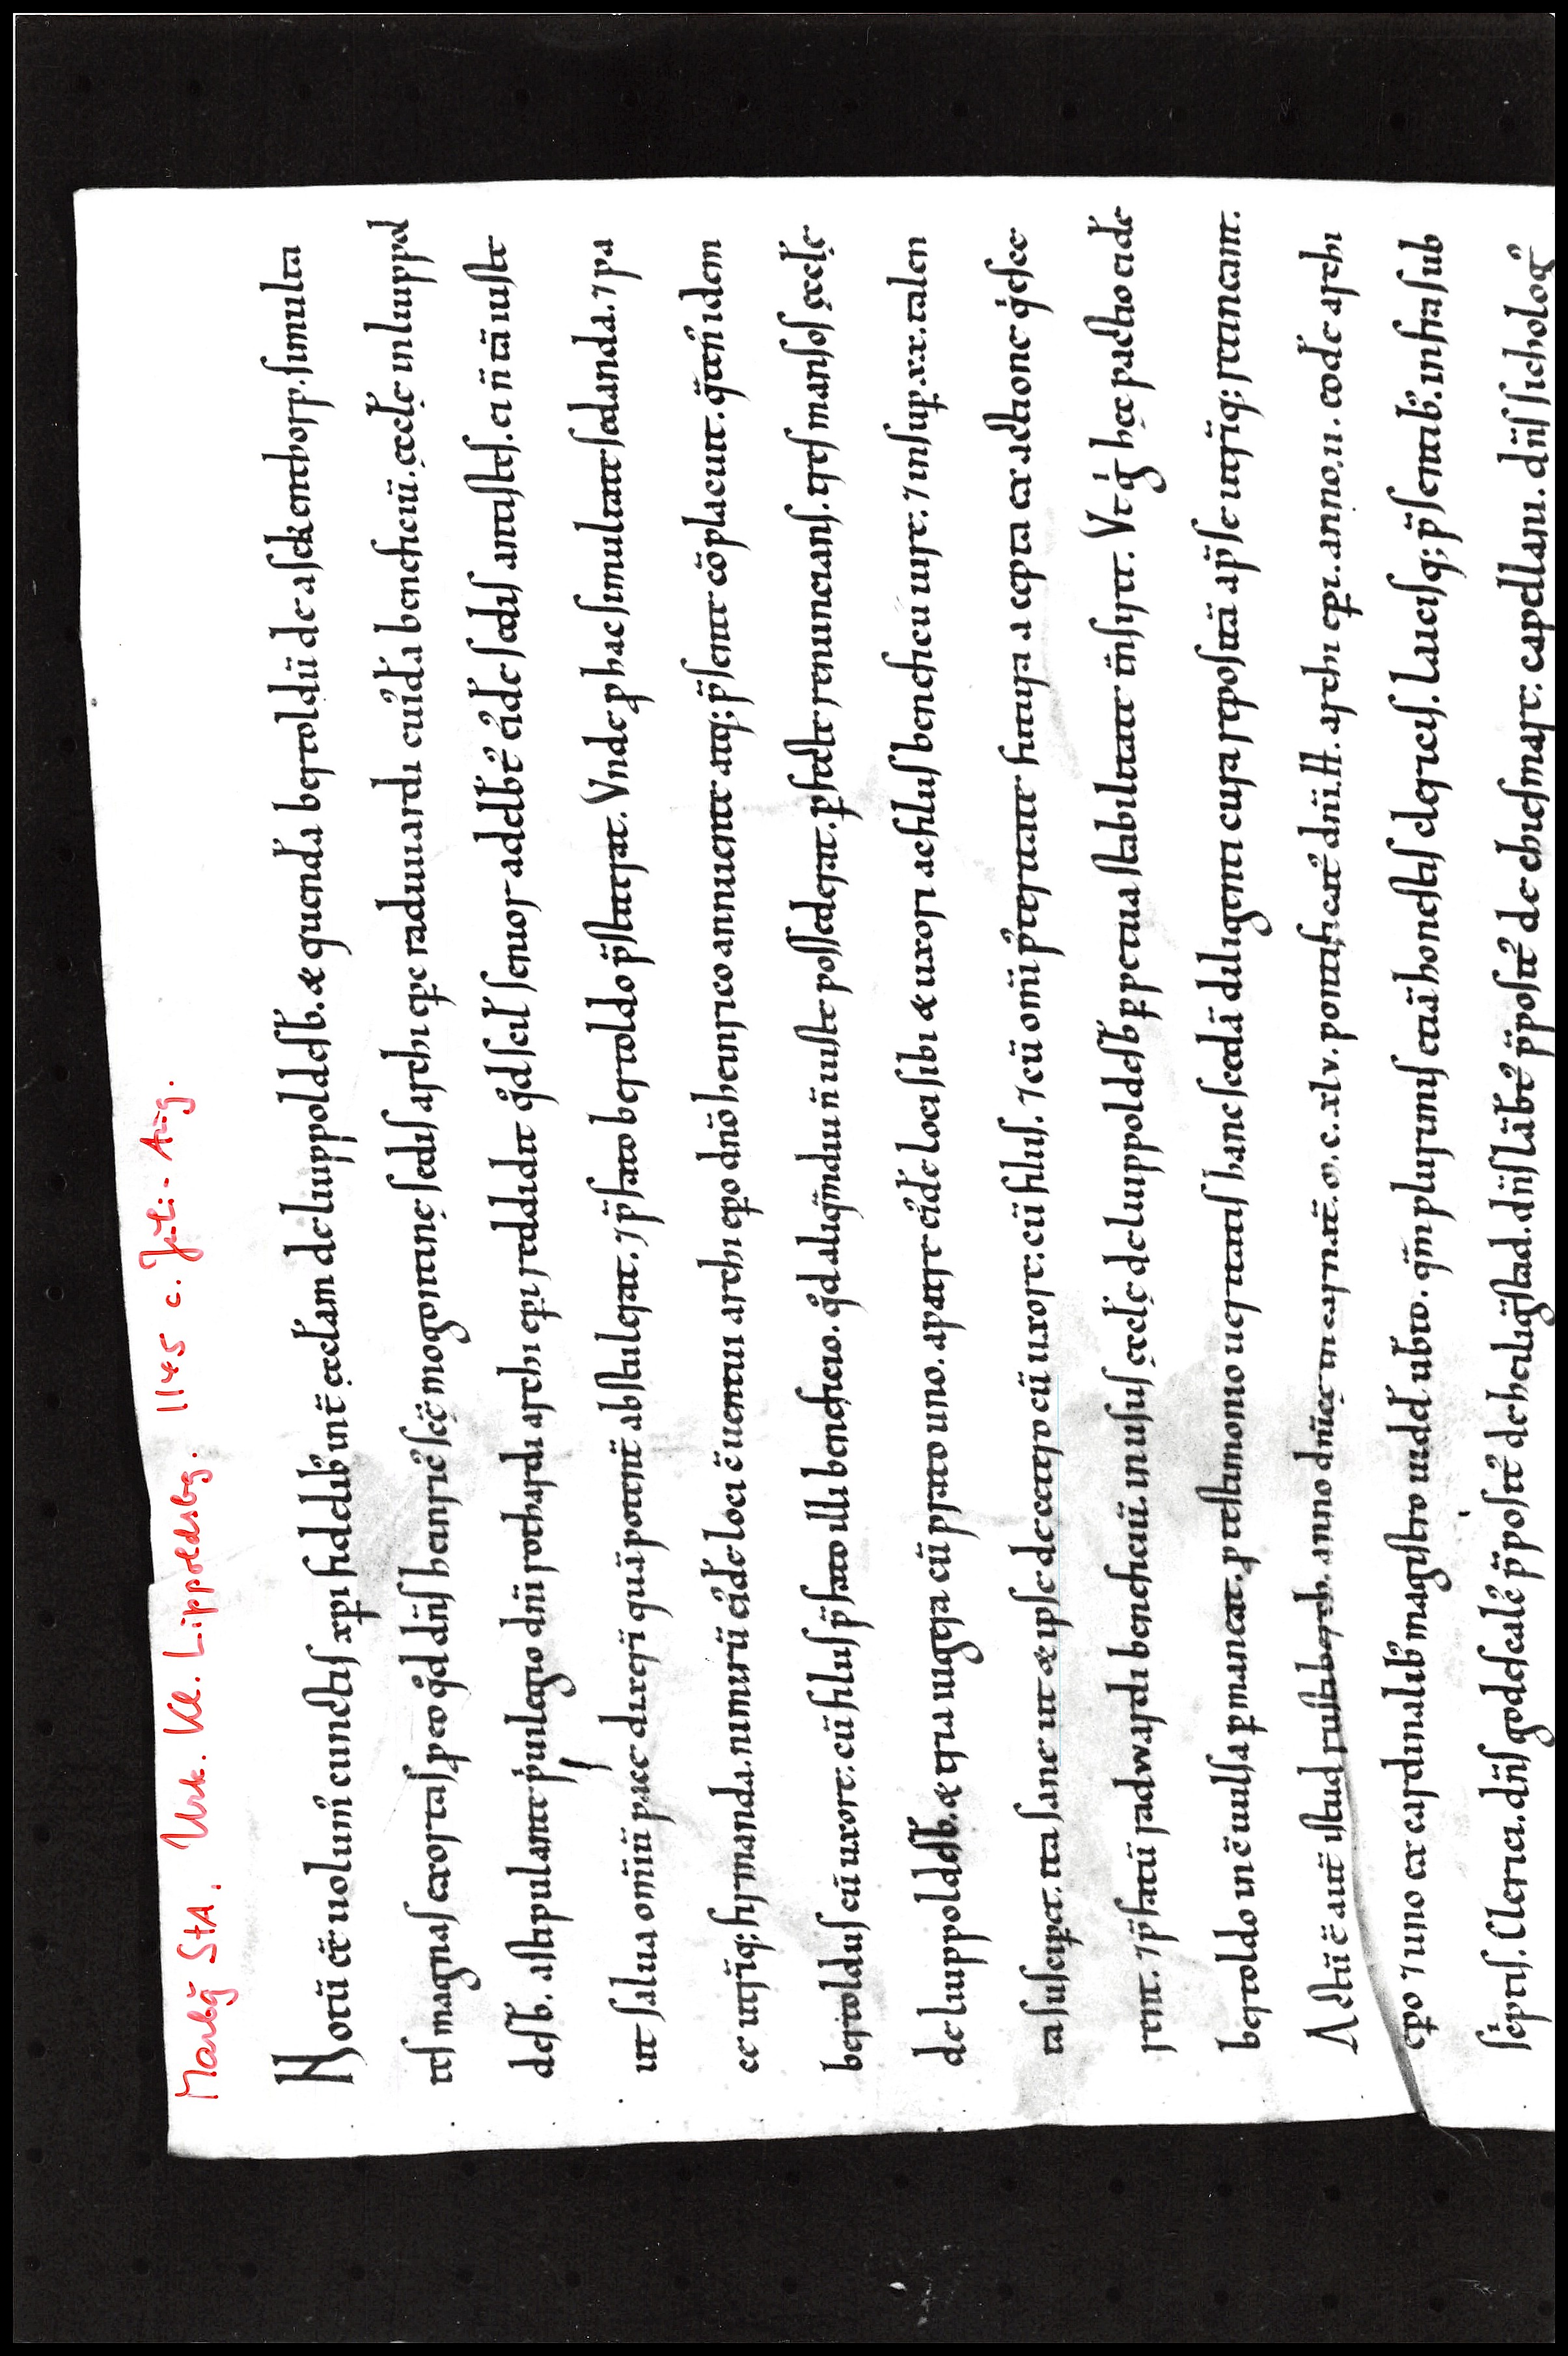 Marbg StA. Urk. Kl. Lippoldsbg. 1145 c. Juli - Aug.
Notū eē uolum᷒ cunctis xp̄i fidelib᷒ int̄ ęccl̄am de luippoldesb̄. & quenda bertoldū de asckenthorp. simulta
tes magnas exortas p eo qd̄ dn̄s heinric᷒ scę̄ mogontinę sedis archi ep̄c raduuardi cuida beneficiū. ęccl̄ę in luippol
desb̄. astipulante puilegio dn̄i rothardi archi ep̄i reddidit qd̄ scil̄ senior adelbt᷒ eide sedis antistes. ei n̄ tā iuste
ut salua om̄iū pace dixeri quā potent̄ abstulerat. ⁊ p̄fato bertoldo p̄stiterat. Vnde p hac simultate sedanda. ⁊ pa
ce utriq; firmanda. nimirū eide loci c̄uentui archi ep̄o dn̄o heinrico annuente atq; p̄sente cōplacuit. q̄ten᷒ idem
bertoldus cū uxore. cū filius p̄fato illi beneficio. qd̄ aliqm̄diu n̄ iuste possederat. pfecte renuncians. tres mansos ęccl̄ę
de luippoldesb̄. & tria iugera cū prato uno. a patre eide loci sibi & uxori ac filius beneficii iure. ⁊ insup. xx. talen
ta susciperet. ita sane ut & ipse de cetero cū uxore. cū filius. ⁊ cū om̄i p᷒teritate futura a cepta ex actione q̓esce
rent. ⁊ p̄fatū radwardi beneficiū. in usus ęccl̄ę de luippoldesb̄ ppetua stabilitate t̄nsiret. Vt g̓ hęc pactio eide
bertoldo inc̄uulsa pmaneat. p testimonio ueritatis hanc scedā diligenti cura repositā ap̄ se utriq; retineant.
Actū ē aut̄ istud rustebergh. anno dn̄icę incarnat̄. m̄. c. xlv. pontificat᷒ dn̄i. H. archi ep̄i. anno. ii. eode archi
ep̄o ⁊ uno ex cardinalib᷒ magistro uidel ubto. qm̄ plurimis etiā honestis clericis. laicisq; p̄sentib᷒. infra sub
sc̓ptis. Clerici. dn̄s godescalc᷒ p̄posit᷒ de heiligēstad. dn̄s lābt᷒ p̄posit᷒ de chiesmare. capellani. dn̄s sicholog᷒